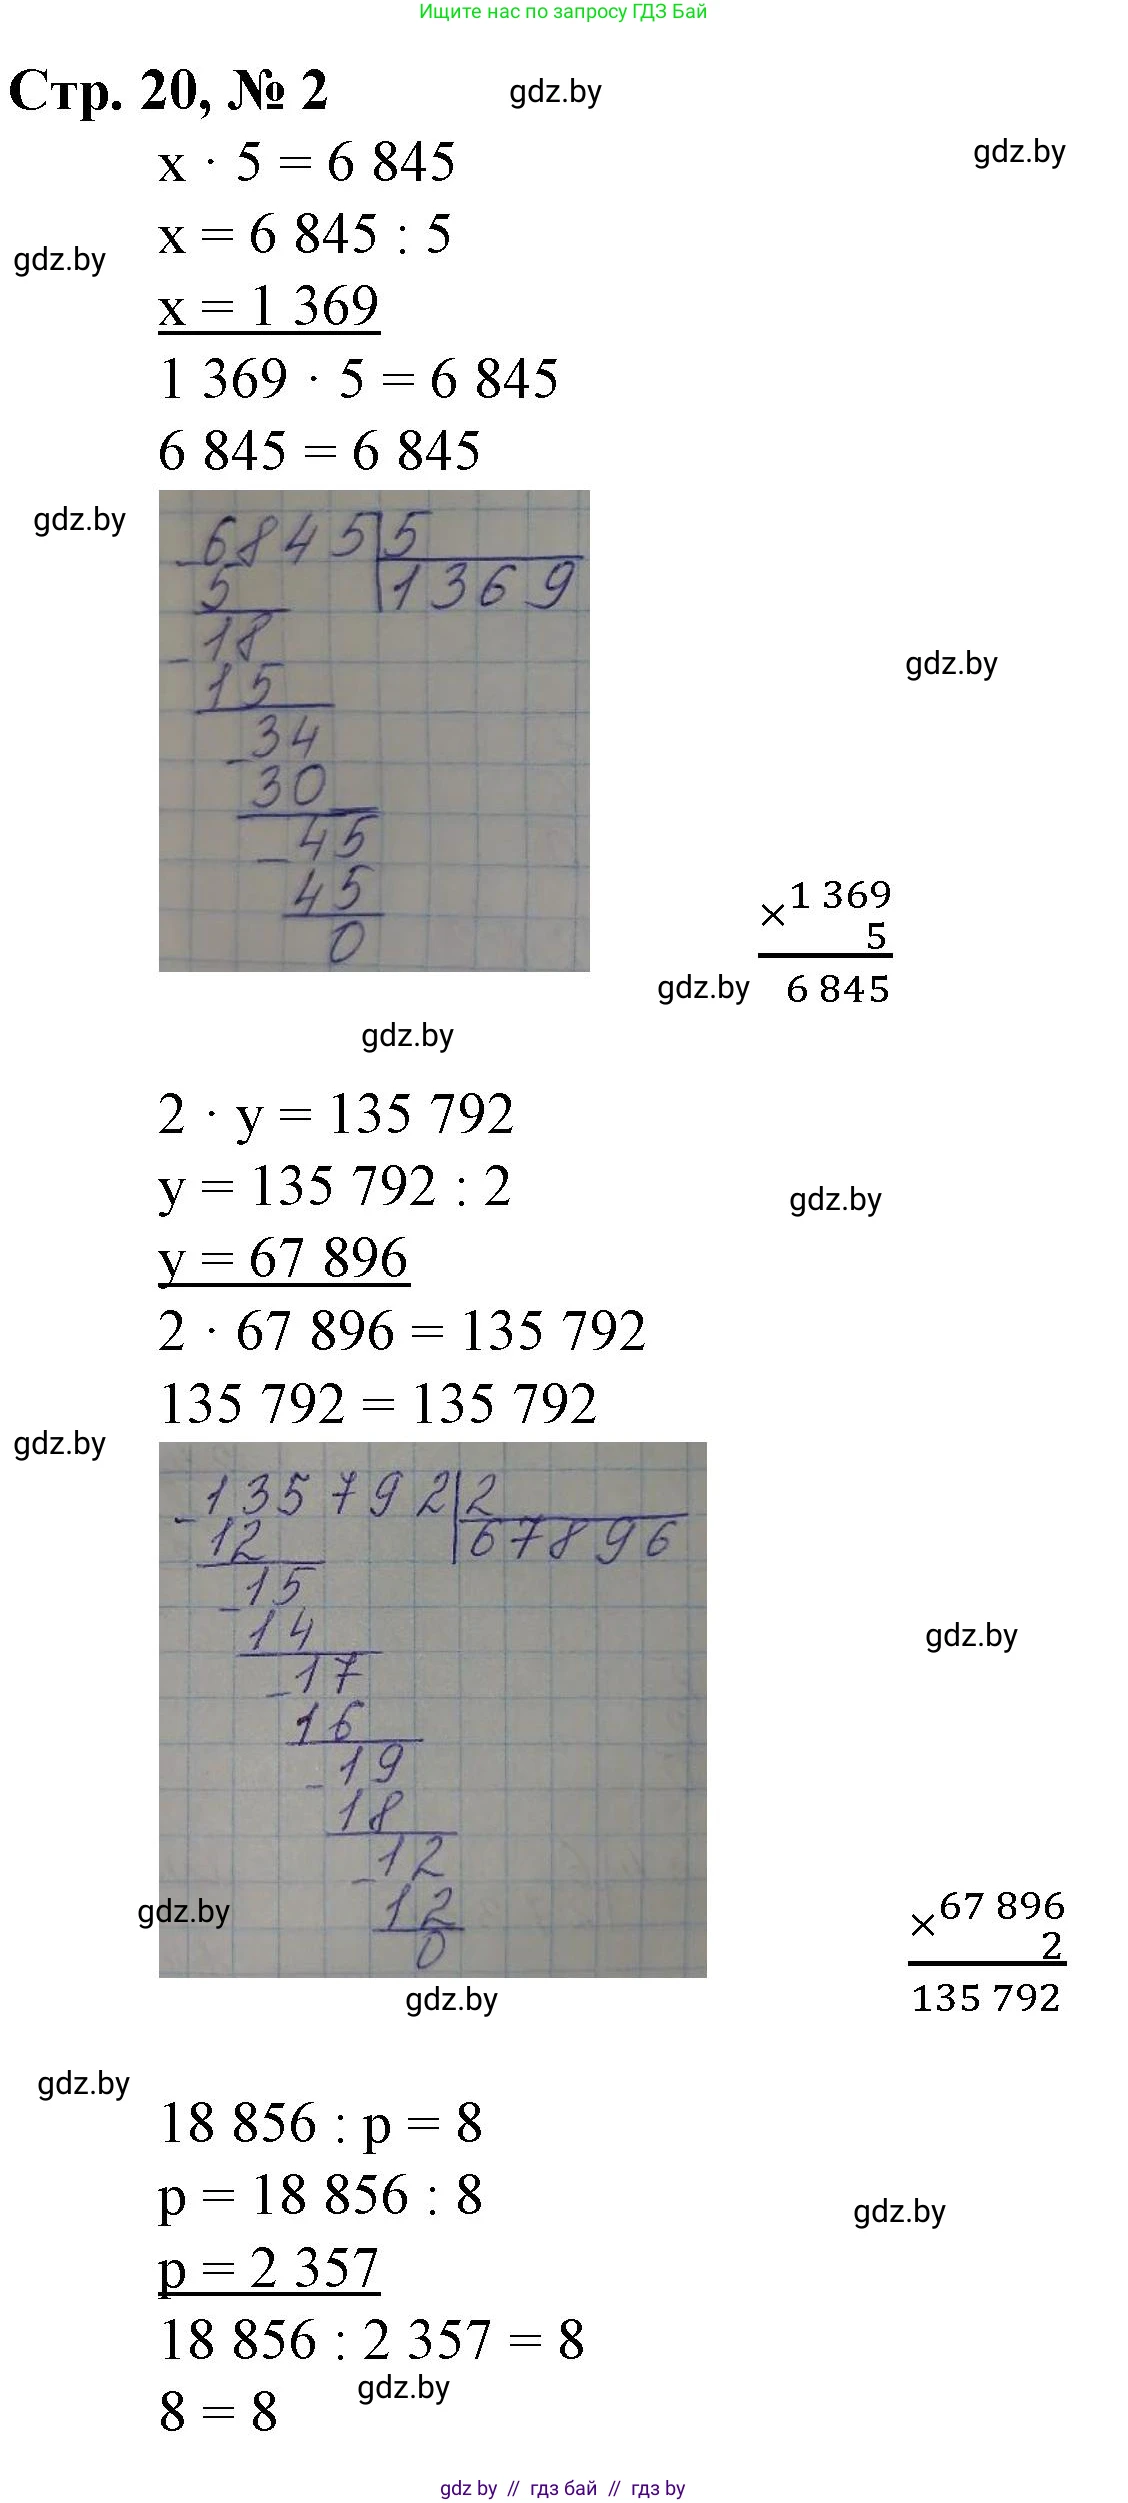 Ищите нас по запросу ГДЗ Бай
Стр. 20, № 2
gdz.by
x · 5 = 6 845
gdz.by
x = 6 845 : 5
gdz.by
x = 1 369
1 369 · 5 = 6 845
6 845 = 6 845
gdz.by
-6845|5
5 1369
-18
15
gdz.by
-34
30
-45
45
0
×1 369
5
6 845
gdz.by
gdz.by
2 · y = 135 792
y = 135 792 : 2
gdz.by
y = 67 896
2 · 67 896 = 135 792
135 792 = 135 792
gdz.by
-135792|2
12 67896
-15
14
gdz.by
-17
16
-19
18
-12
12
0
gdz.by
×67 896
2
135 792
gdz.by
gdz.by
18 856 : p = 8
p = 18 856 : 8
gdz.by
p = 2 357
18 856 : 2 357 = 8
gdz.by
8 = 8
gdz by // гдз бай // gdz by